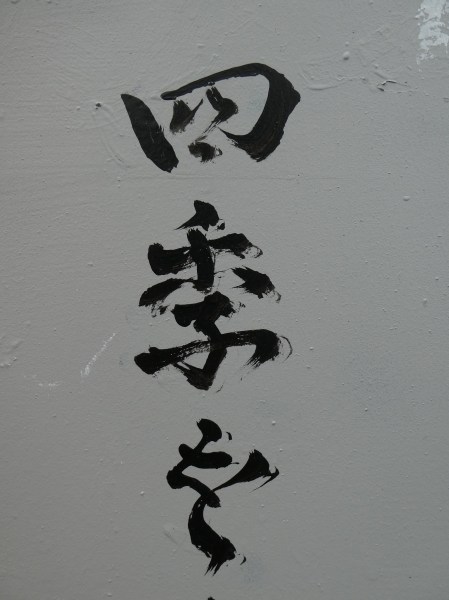 四季を